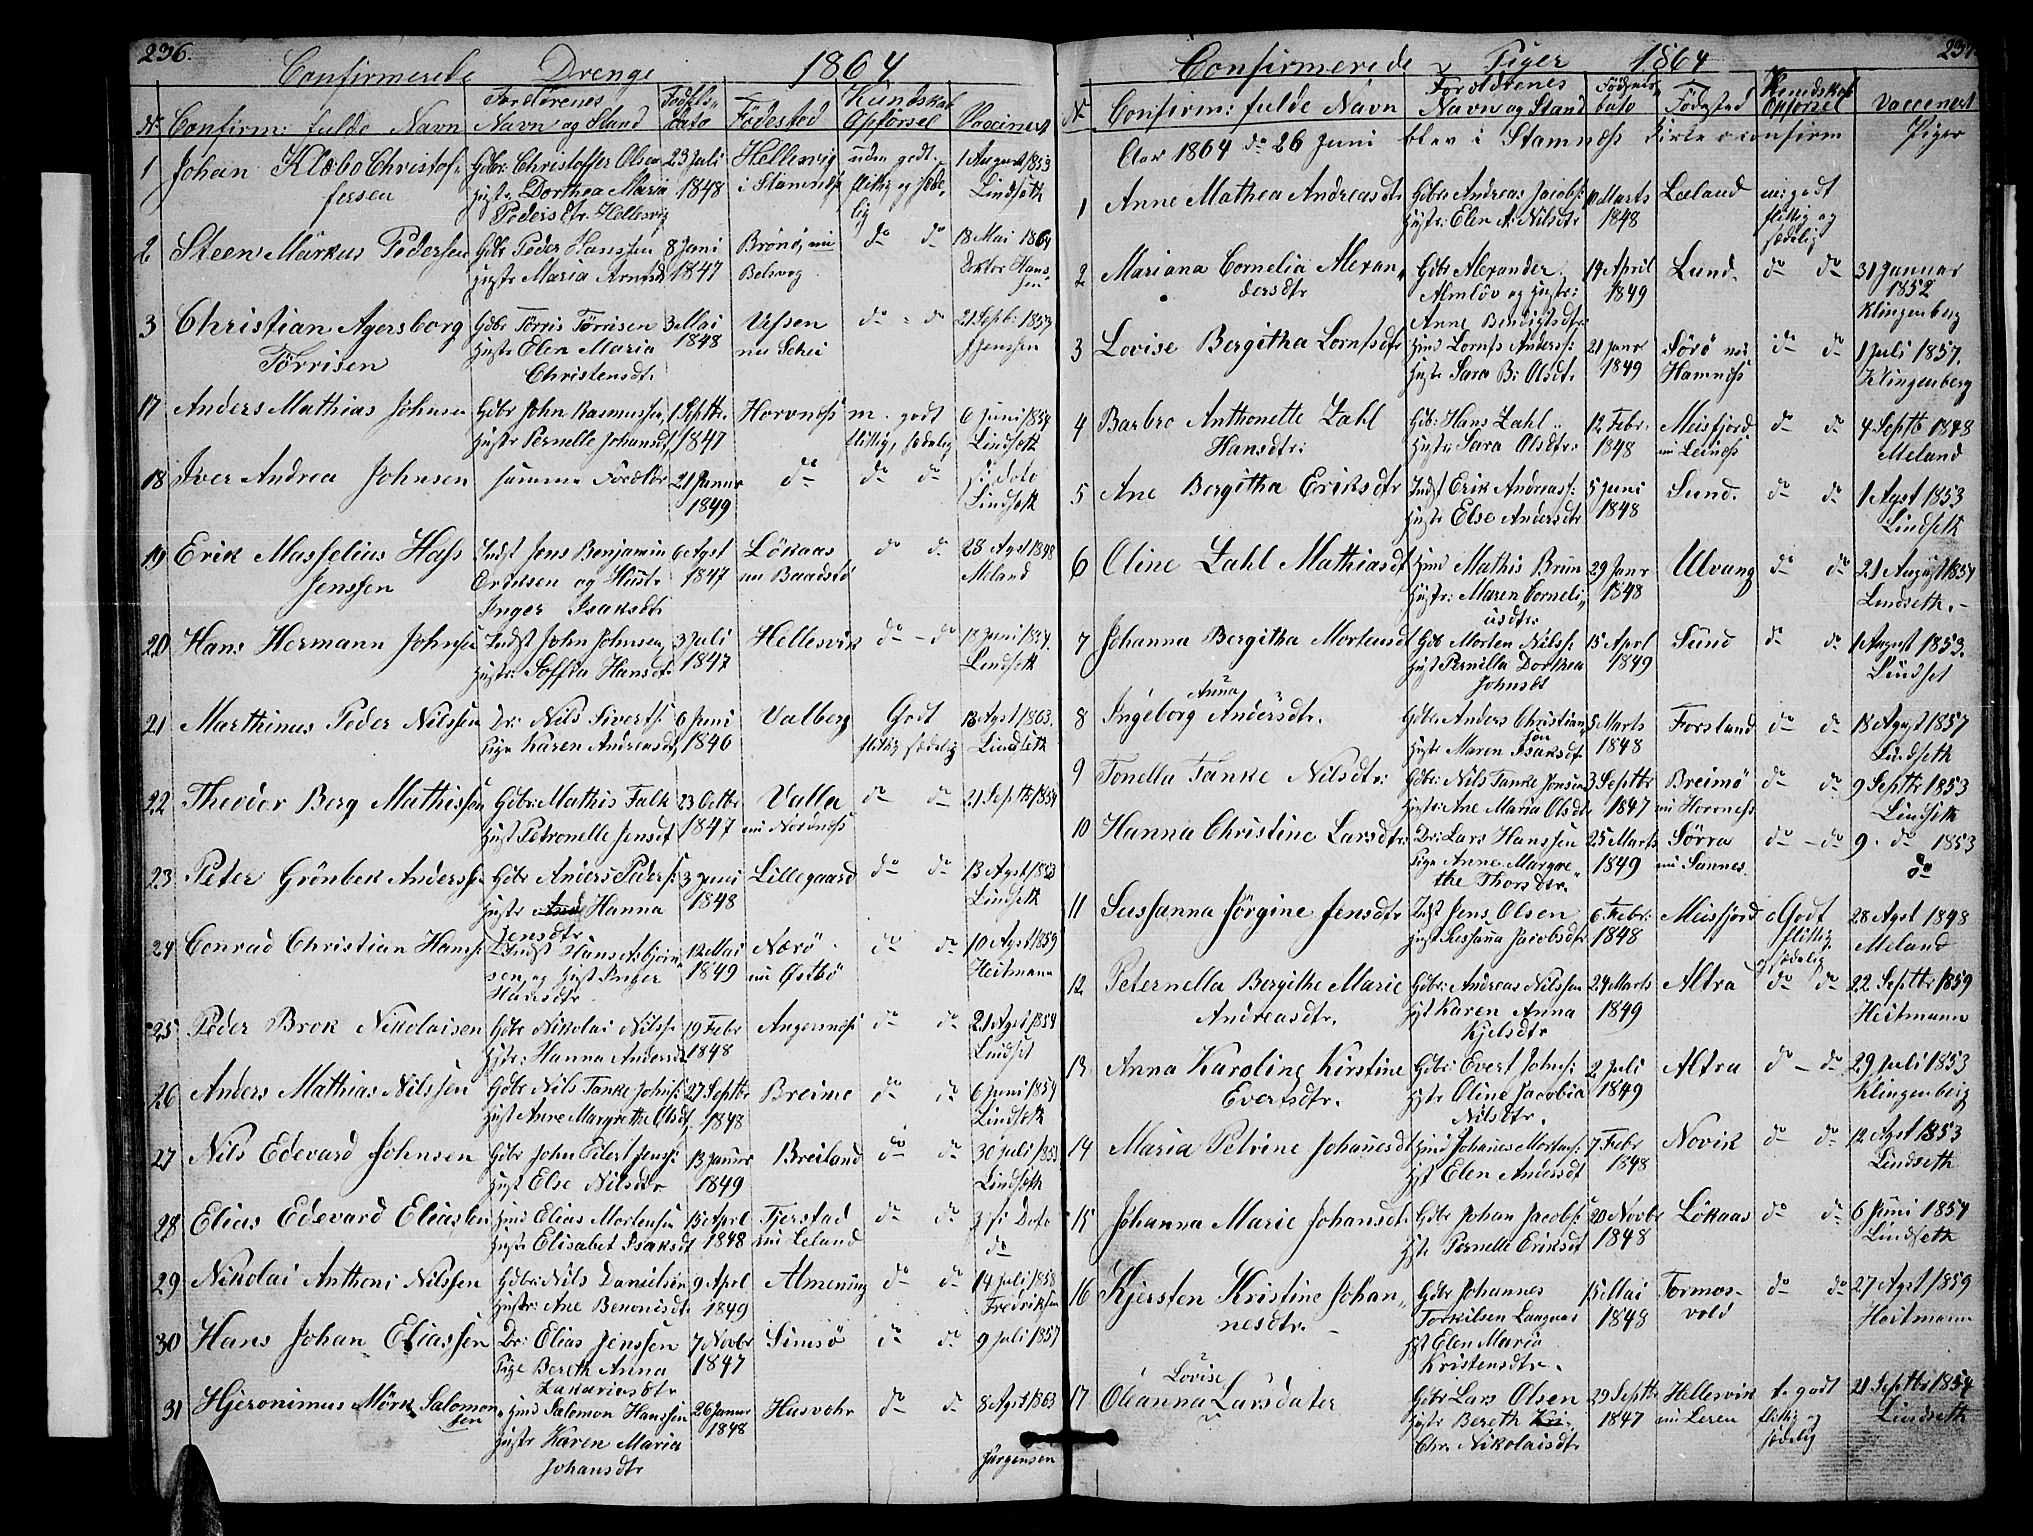 236.
Confirmerede Drenge 1864
No Confirm: fulde Navn
Forældrenes Navn og Stand
Fødsels dato
Fødested
Kundskab Opførsel
Vaccineret
1 Johan Klæbo Christoffersen
Gdbr Christoffer Olsen Hustr. Dorthea Maria Pedersdtr. Hellesvig
23 Juli 1848
Hellesvig i Stamnes
uden godt. flittig og sædelig
1 August 1853 Lindseth
2 Steen Markus Pedersen
Gdbr Peder Hanssen Hustr Maria Arntsdtr
8 Juni 1847
Brønø, nu Belsvog
do do
18 Mai 1864 Doktor Hanssen
3 Christian Agersborg Tørrisen
Gdbr Tørris Tørrisen Hustr Elen Maria Christensdt.
3 Mai 1848
Vefsen nu Schei
do do
21 Septb: 1857 Jenssen
17 Anders Mathias Johnsen
Gdbr John Rasmussen, Hustr Pernelle Johansdt,
1 Septbr. 1847
Horvnæss
m. godt flittig, sædelig
6 Juni 1854 Lindseth
18 Iver Andrea Johnsen
samme Forældre
21 Januar 1849
do
do do
s: Dato Lindseth
19 Erik Masselius Hass Jenssen
Indst Jens Benjamin Eriksen og Hustr Inger Isaksdt
6 Agst 1847
Løkaas nu Baadstø
do do
28 Agst 1848 Meland
20 Hans Hermann Johnsen
Indst John Johnsen, Hustr: Soffia Hansdt.
3 Juli 1847
Hellesvik
do - do
18 Juni 1854. Lindseth
21 Marthinus Peder Nilssen
Dr: Nils Sivertss: Pige Karen Andreasdt
6 Juni 1846
Valberg
Godt flittig sædelig
18 Agst 1863. Lindseth
22 Theodor Berg Mathissen
Gdbr: Mathis Falk Hust Petronelle Jensdt
23 Octbr 1847
Valla nu Nordnæss
do do
21 Septbr 1854
23 Peter Grønbek Anderssen
Gdbr Anders Peders: Hustr Hanna Jensdtr
3 Juni 1848
Lillegaard
do do
13 Agst 1853 Lindseth
24 Conrad Christian Hanss:
Indst Hans Asbjørnsen, og Hust Inger Hansdtr.
12 Mai 1849
Nærø nu Ostbø
do do
10 Agst 1859 Heitmann
25 Peder Brok Nikolaisen
Gdbr Nikolai Nilss: Hstr: Hanna Andersdt
19 Febr 1848
Angersnæs
do do
21 Agst 1854 Lindset
26 Anders Mathias Nilssen
Gdbr Nils Tanke Johns: Hust Anne Margrethe Olsdt.
27 Septbr 1848
Breimo
do do
6 Juni 1854 Lindseth
27 Nils Edevard Johnsen
Gdbr John Eilert Jens: Hust Else Nilsdtr
13 Januar 1849
Breiland
do do
30 Juli 1853 Lindseth
28 Elias Edevard Eliassen
Hmd Elias Mortensen Hustr Elisabet Isaksdt
15 Aprl 1848
Tjerstad nu Leland
do do
s: Dato do
29 Nikolai Anthoni Nilssen
Gdbr: Nils Danielsen Hustr: Ane Benonisdt.
9 Aprl 1849
Almening
do do
14 Juli 1858 Fredriksen
30 Hans Johan Eliassen
Dr: Elias Jenssen Pige Bereth Anna Zakariasdtr
7 Novbr 1847
Simsø
do do
9 Juli 1857
31 Hjeronimus Mørk Salomonsen
Hmd Salomon Hanssen Hustr Karen Maria Johansdtr
26 Januar 1848
Husvohr
do do
8 Agst 1863 Jørgensen
237.
Confirmerede Piger 1864
No Confirm: fulde Navn
Forældrenes Navn og Stand
Fødsels dato
Fødested
Kundskab Opførsel
Vaccineret
Aar 1864 do 26 Juni blev i Stamness Kirke confirm Piger
1 Anne Mathea Andreasdt
Gdbr Andreas Jacobs: Hustr: Elen A: Nilsdtr
11 Marts 1848
Leland
m: godt flittig og sædelig
2 Mariana Cornelia Alexandersdtr
Gdbr Alexander Almløv og Hustr: Anne Bendigtsdtr
14 April 1849
Lund.
do do
31 Januar 1852 Klingenberg
3 Lovise Bergitha Lorntsdtr
Hmd Lornts Anderss: Hustr Sara B: Olsdt.
21 Janr 1849
Sørø nu Hamnæss
do do
1 Juli 1857. Klingenberg
4 Barbro Anthonette Zahl Hansdtr:
Gdb: Hans Zahl Hustr: Sara Olsdtr:
12 Febr: 1848
Meisfjord nu Leinæss
do do
4 Septb 1848 Meland
5 Ane Bergitha Eriksdtr
Indst Erik Andreass: Hustr Else Andersdtr
5 Juni 1848
Sund.
do do
1 Agst 1853 Lindseth
6 Oline Zahl Mathiasdt
Hmd Mathis Brun Hustr: Maren Corneliusdtr
29 Janr 1848
Ulvang
do do
21 August 1854 Lindseth.-
7 Johanna Bergitha Mortensdt
Gdb Morten Nilss: Hust Pernilla Dorthea Johnsdt
15 Aprl 1849
Sund
do do
1 August 1853. Lindset
8 Ingeborg Anna Andersdtr.
Gdbr. Anders Christiansen Hustr Maren Isaksdt
5 Marts 1848
Forsland
do do
18 Agst 1857 Lindseth
9 Tonella Tanke Nilsdtr:
Gdbr: Nils Tanke Jonsen Hustr: Ane Maria Olsdt
3 Septbr 1847
Breimo nu Horvnæss
do do
9 Septbr 1853 Lindseth
10 Hanna Christine Larsdtr:
Dr: Lars Hanssen Pige Anne Margrethe Thorsdtr.
25 Marts 1849
Sørra nu Sannes.
do - do
9. do 1853 do
11 Sussanna Jørgine Jensdtr
Indst Jens Olsen Hust Sussana Jacobsdtr
6 Febr: 1848
Meisfjord
Godt flittig og sædelig
28 Agst 1848 Meland
12. Peternella Bergithe Marie Andreasdtr.
Gdbr: Andreas Nilssen Hst Karen Anna Kjelsdtr
24 Marts 1849
Altra
do do
22 Septbr 1859 Heitmann
13 Anna Karoline Kirstine Evertsdtr.
Gdbr: Evert Johns: Hstr Oline Jacobia Nilsdtr.
2 Juli 1849
Altra
do - do
29 Juli 1853 Klingenberg
14 Maria Petrine Johanesdt
Hmd Johanes Mortens: Hst Elen Andersdt
7 Febr 1848
Novik
do do
12 Agst 1853 Lindseth
15 Johanna Marie Johansdt.
Gdbr Johan Jacobs: Hst. Pernelle Eriksdt
20 Novbr 1848
Løkaas
do do
6 Juni 1854 Lindseth
16 Kjersten Kristine Johannesdtr.
Gdbr Johannes Torkilsen Langnes Hst Elen Maria Kristensdtr.
15 Mai 1848
Formosvold
do do
27 Agst 1859 Heitmann
17 Oleanna Lovise Larsdater
Gdbr Lars Olsen Hustr Bereth Chr. Nikolaisdtr
29 Septbr 1847
Hellesvik nu Leren
t. godt flittig og sædelig
21 Septbr 1854 Lindseth